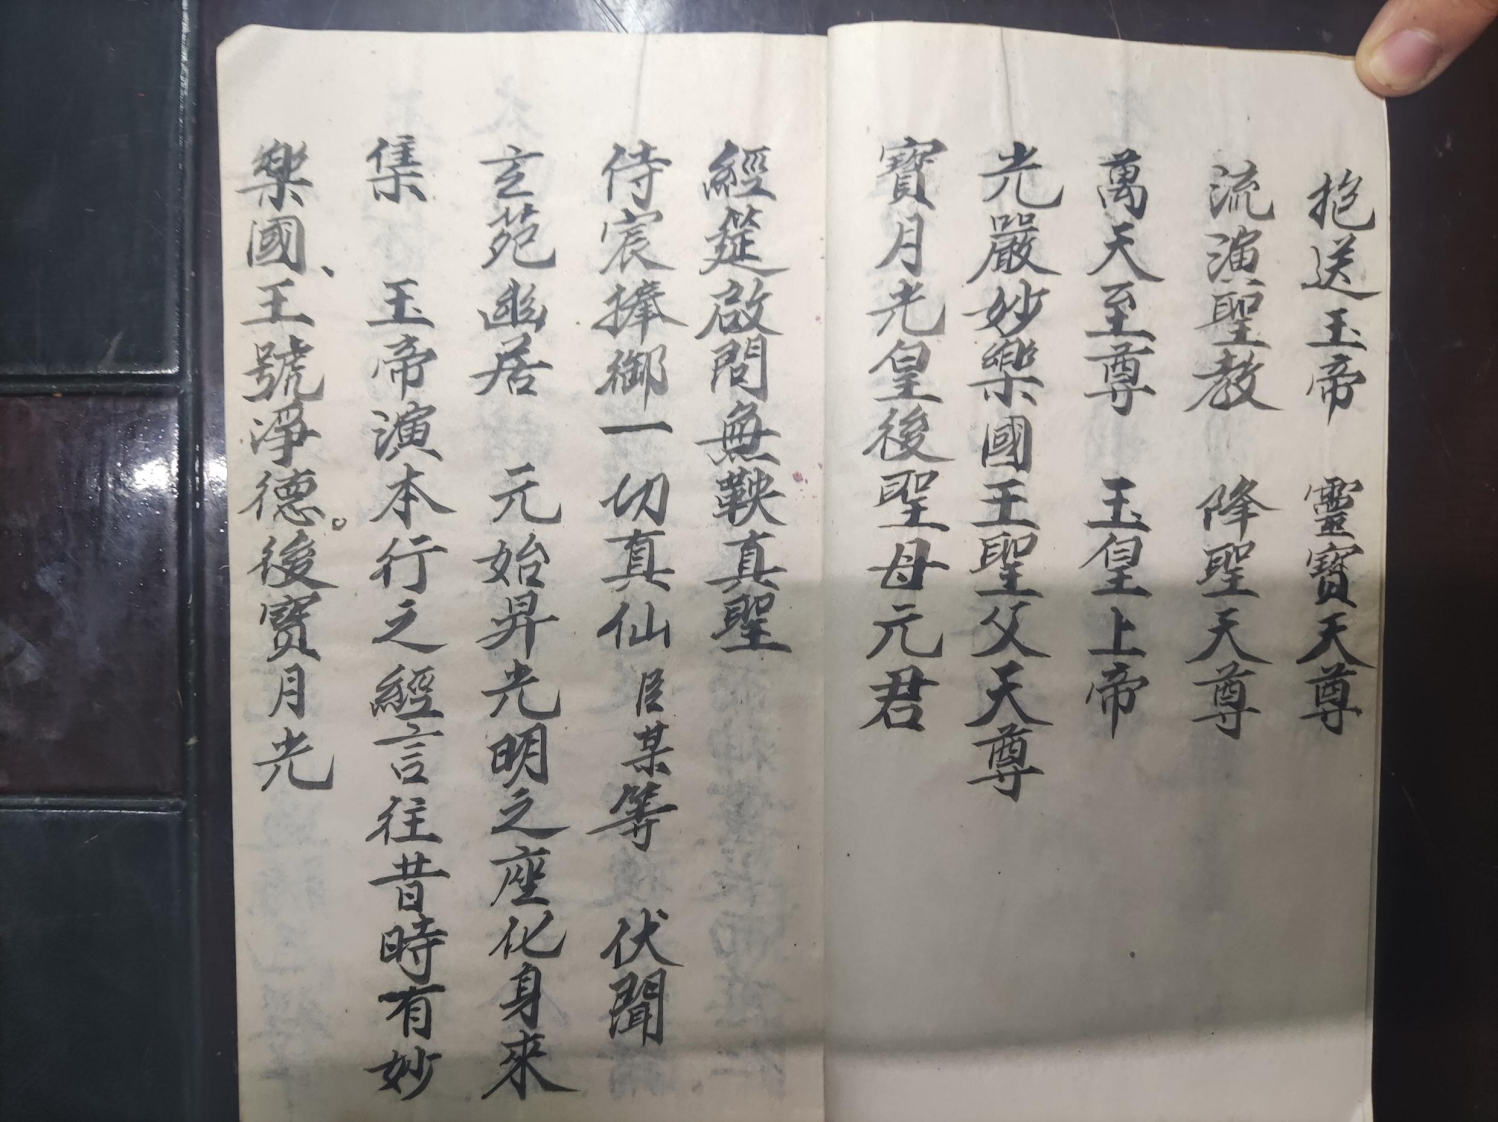 抱送玉帝 靈寶天尊
流演聖教 降聖天尊
萬天至尊 玉皇上帝
光嚴妙樂國王聖父天尊
寶月光皇後聖母元君
經筵啟問無鞅真聖
侍宸捧御一切真仙臣某等 伏聞
玄苑幽居 元始昇光明之座化身來
集 玉帝演本行之經言往昔時有妙
樂國、王號淨德。後寳月光